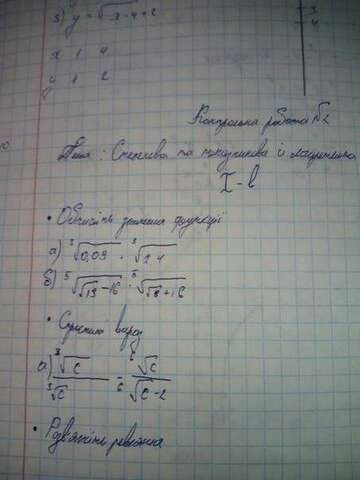 3) y = √x-4+2
x 1 4
y 1 2
Контрольна робота №2
Тема: Степенева та показникова і логарифмічна
І-в
• Обчисліть значення функції
а) ³√0,09 · ³√2 4
б) ⁵√√19-16 · ⁵√√19+16
• Спростіть вираз
а) ³√c / ³√c = ⁶√c / ⁶√c-2
• Розв'яжіть рівняння